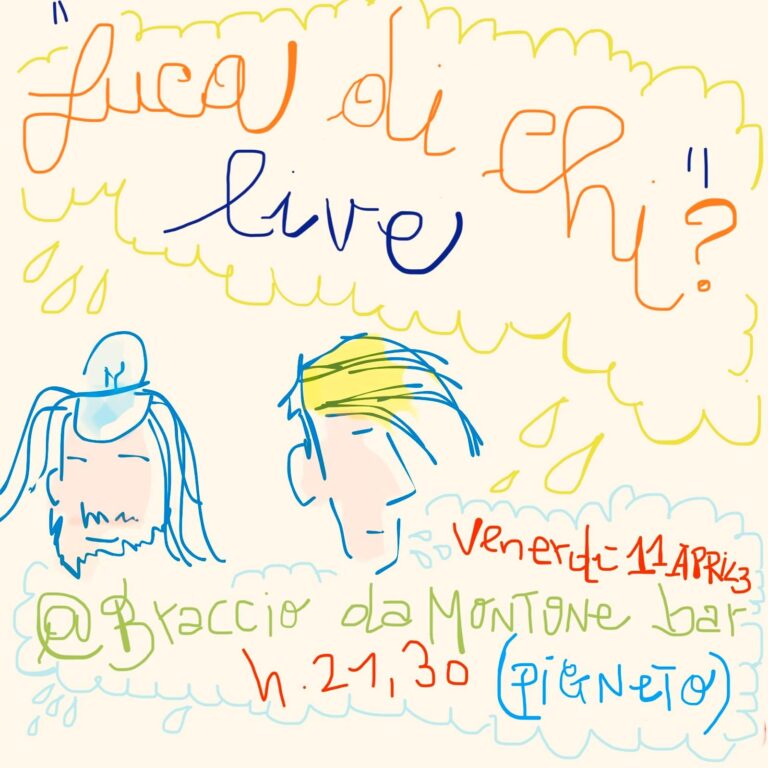 "Luca di Chi"?
live
Venerdì 11 APRILE
@ Braccio da MONTONE bar
h. 21,30 (PIGNETO)